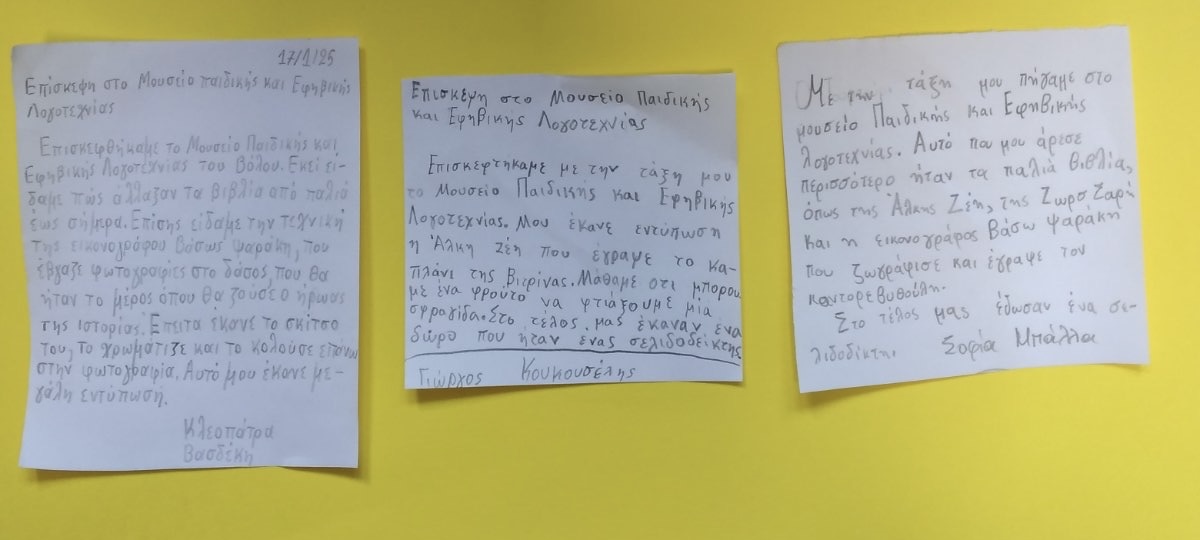 17/1/25
Επίσκεψη στο Μουσείο παιδικής και Εφηβικής
Λογοτεχνίας
Επισκεφθήκαμε το Μουσείο Παιδικής και
Εφηβικής Λογοτεχνίας του Βόλου. Εκεί εί-
δαμε πώς άλλαζαν τα βιβλία από παλιό
έως σήμερα. Επίσης είδαμε την τεχνική
της εικονογράφου Βάσως Ψαράκη, που
έβγαζε φωτογραφίες στο δάσος που θα
ήταν το μέρος όπου θα ζούσε ο ήρωας
της ιστορίας. Έπειτα έκανε το σκίτσο
του, το χρωμάτιζε και το κολούσε επάνω
στην φωτογραφία. Αυτό μου έκανε με-
γάλη εντύπωσή.
Κλεοπάτρα
Βασδέκη
Επισκέψη στο Μουσείο Παιδικής
και Εφηβικής Λογοτεχνίας
Επισκεφτήκαμε με την τάξη μου
το Μουσείο Παιδικής και Εφηβικής
Λογοτεχνίας. Μου έκανε εντύπωση
η Άλκη Ζέη που έγραψε το κα-
πλάνι της Βιτρίνας. Μάθαμε οτι μπορου
με ένα φρούτο να φτιάξουμε μία
σφραγίδα. Στο τέλος, μας έκαναν ένα
δώρο που ήταν ένας σελιδοδείκτης
Γιώργος Κουκουσέλης
Με την τάξη μου πήγαμε στο
μουσείο Παιδικής και Εφηβικής
λογοτεχνίας. Αυτό που μου άρεσε
περισσότερο ήταν τα παλιά βιβλία,
όπως της Άλκης Ζέη, της Ζωρσ Ζαρή
και η εικονογράφος Βάσω Ψαράκη
που ζωγράφισε και έγραψε τον
κοντορεβυθούλη.
Στο τέλος μας έδωσαν ένα σε-
λιδοδίκτη. Σοφία Μπάλλα